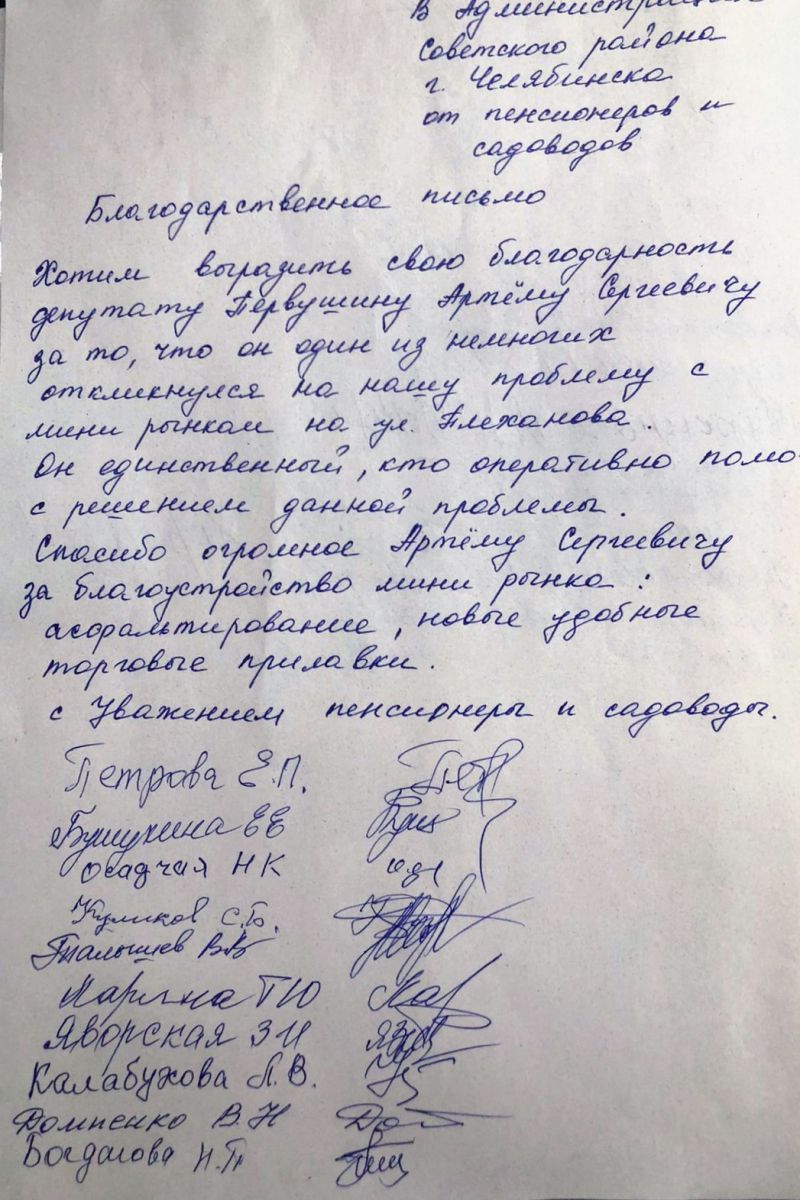 В Администрацию
Советского района
г. Челябинска
от пенсионеров и
садоводов
Благодарственное письмо
Хотим выразить свою благодарность
депутату Первушину Артёму Сергеевичу
за то, что он один из немногих
откликнулся на нашу проблему с
мини рынком на ул. Плеханова.
Он единственный, кто оперативно помо
с решением данной проблемы.
Спасибо огромное Артёму Сергеевичу
за благоустройство мини рынка:
асфальтирование, новые удобные
торговые прилавки.
с Уважением пенсионеры и садоводы.
Петрова Е.П.
ЕЕ
Осадчая НК
Куликов С.Б.
ВВ
Ларина ТЮ
Яворская ЗИ
Калабухова Л.В.
В.Н
Богданова Н.П